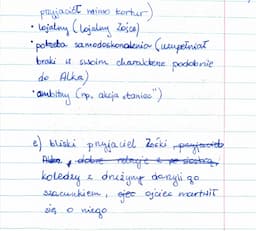 przyjaciół mimo tortur)
• lojalny (lojalny Zośce)
• potrzeba samodoskonalenia (uzupełniał
braki w swoim charakterze podobnie
do Alka)
• ambitny (np. akcja „taniec")
e) bliski przyjaciel Zośki, przyjaciel
Alka, dobre relacje z siostrą,
koledzy z drużyny darzyli go
szacunkiem, ojciec martwił
się o niego